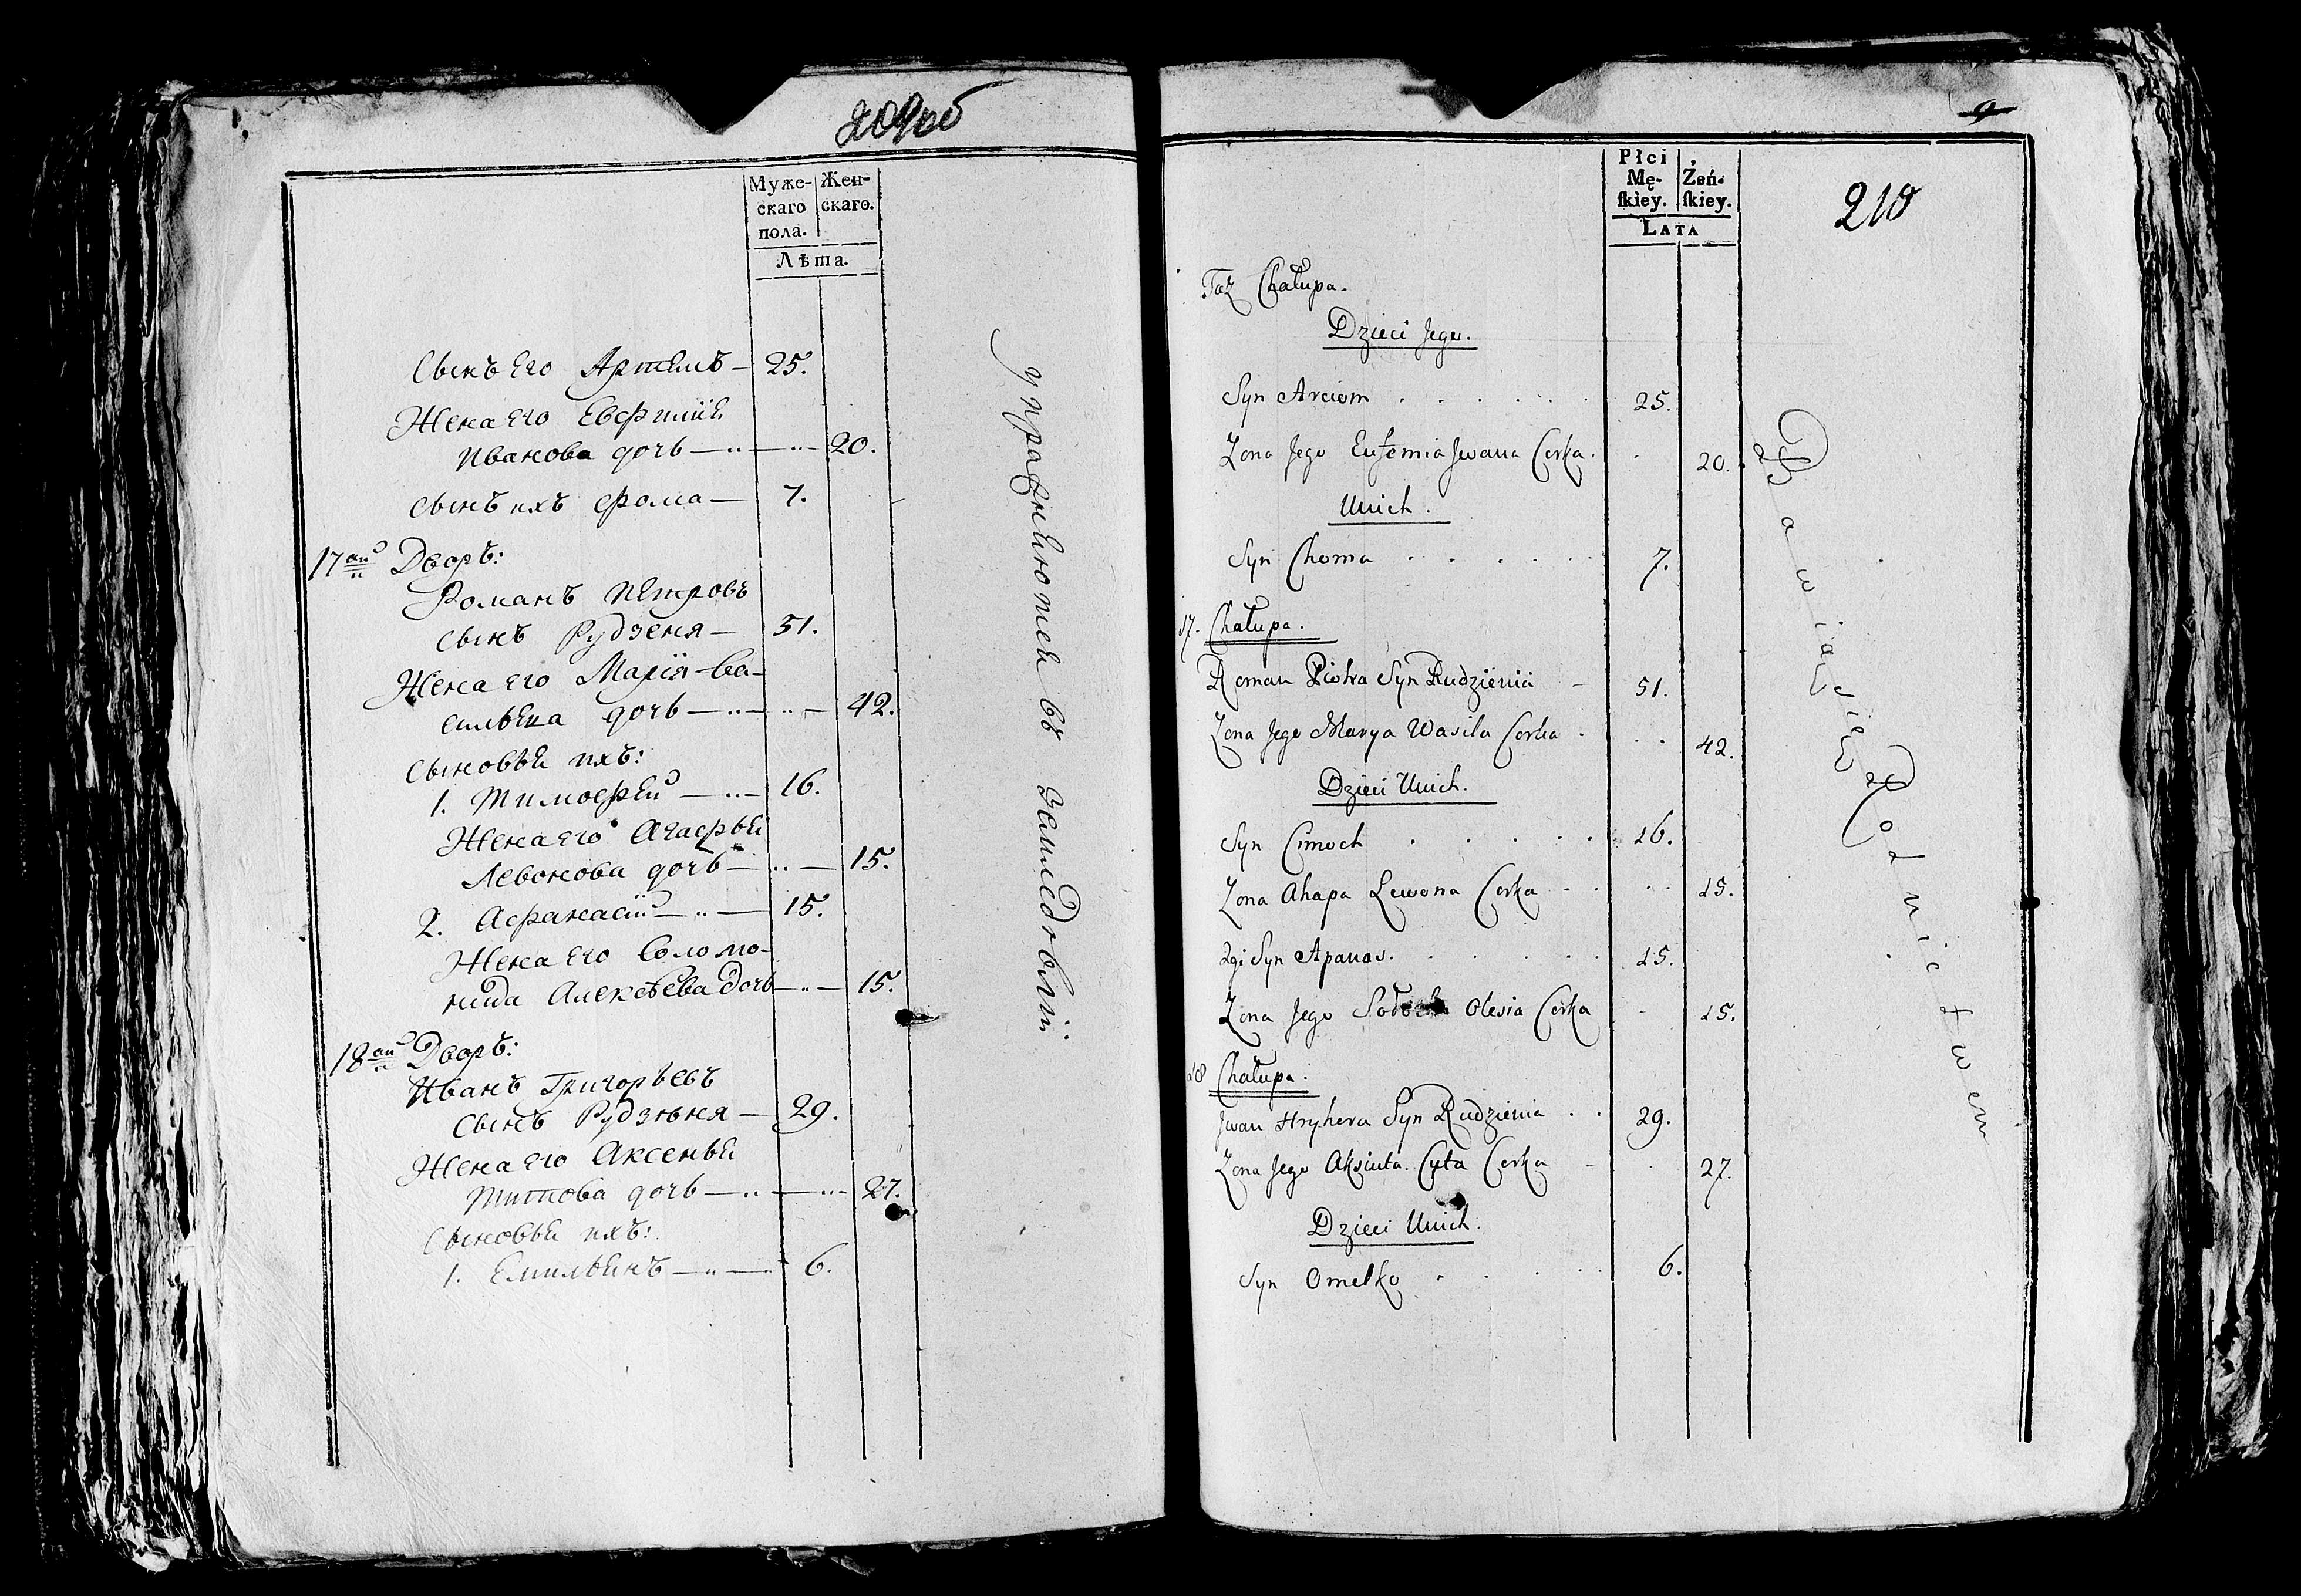 209об
Муже- Жен-
скаго скаго.
пола.
Лѣта.
Сынъ Его Артемъ — 25.
Жена его Евфимія
Иванова дочь — 20.
сынъ ихъ Фома — 7.
17ый Дворъ:
Романъ Петровъ
сынъ Рудзеня — 51.
Жена его Марія Ва-
сильева дочь — 42.
Сыновья ихъ:
1. Тимофей — 16.
Жена его Агафья
Левонова дочь — 15.
2. Афанасій — 15.
Жена Его Соломо-
нида Алексѣева дочь — 15.
18ый Дворъ:
Иванъ Григорьевъ
сынъ Рудзѣня — 29.
Жена его Аксенья
Титова дочь — 27.
Сыновья ихъ:
1. Емильянъ — 6.
упражняются въ земледѣліи.
9
210
Płci
Mę- Żeń-
skiey. skiey.
LATA
Taż Chałupa.
Dzieci Jego.
Syn Arciom . . . . . 25.
Zona Jego Eufemia Jwana Corka . . 20.
Unich.
Syn Choma . . . . . 7.
17. Chałupa.
Roman Piotra Syn Rudzienia – 51.
Zona Jego Marya Wasila Corka . . . 42.
Dzieci Unich.
Syn Cimoch . . . . . 16.
Zona Ahapa Lewona Corka . . . 15.
2gi Syn Apanas. . . . . . 15.
Zona Jego Olesia Corka 15.
18 Chałupa.
Jwan Hryhora Syn Rudzienia . . 29.
Zona Jego Aksiuta Cyta Corka 27.
Dzieci Unich.
Syn Omelko . . . . . 6.
Bawią się Rolnictwem